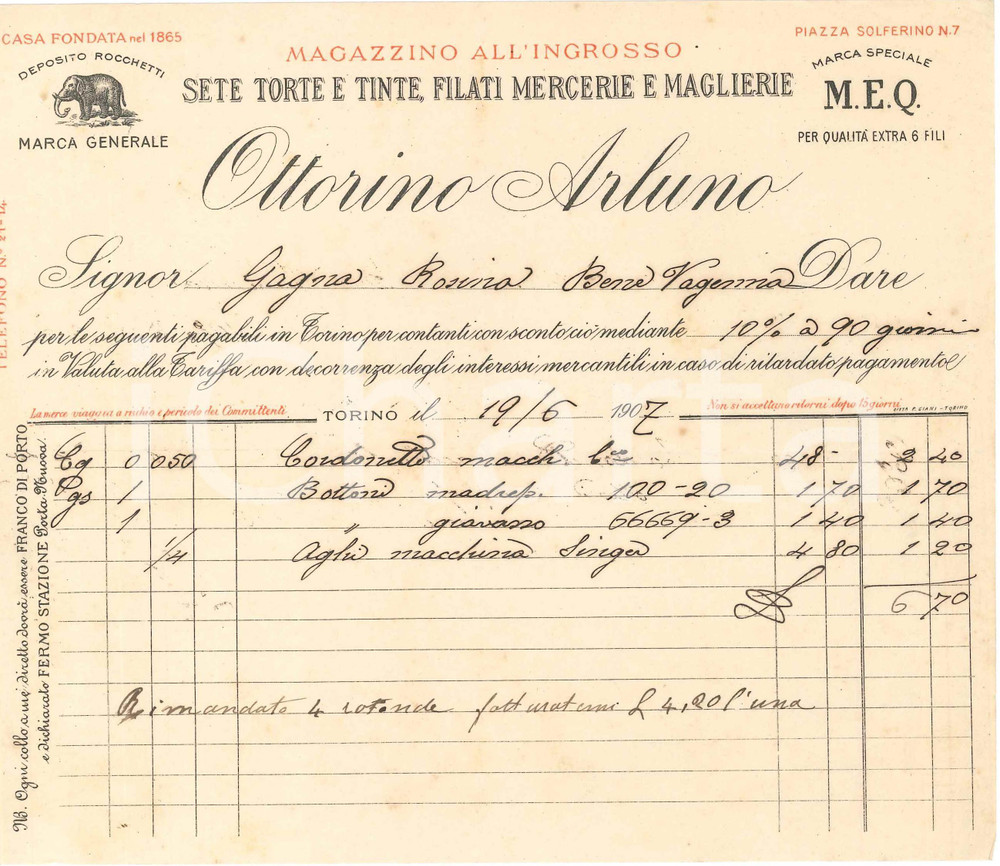 CASA FONDATA nel 1865
PIAZZA SOLFERINO N.7
DEPOSITO ROCCHETTI
MARCA GENERALE
MAGAZZINO ALL'INGROSSO
SETE TORTE E TINTE, FILATI MERCERIE E MAGLIERIE
MARCA SPECIALE
M.E.Q.
PER QUALITÀ EXTRA 6 FILI
Ottorino Arluno
TELEFONO N.º 21-12
Signor Gagna Rosina Bene Vagenna Dare
per le seguenti pagabili in Torino per contanti con sconto ciò mediante 10% a 90 giorni
in Valuta alla Tariffa con decorrenza degli interessi mercantili in caso di ritardato pagamento
La merce viaggia a rischio e pericolo dei Committenti
TORINO il 19/6 1907
Non si accettano ritorni dopo 15 giorni
DITTA F. GIANI - TORINO
Cg 0 050 Cordonetto macch 48- 2 40
Cgs 1 Bottoni madrep. 100-20 1 70 1 70
1 " giavasso 66669-3 1 40 1 40
1/4 Aghi macchina Singer 4 80 1 20
6 70
Rimandato 4 rotonde fatturatemi £ 4,20 l'una
NB. Ogni collo a me diretto dovrà essere FRANCO DI PORTO
e dichiarato FERMO STAZIONE Porta Nuova.